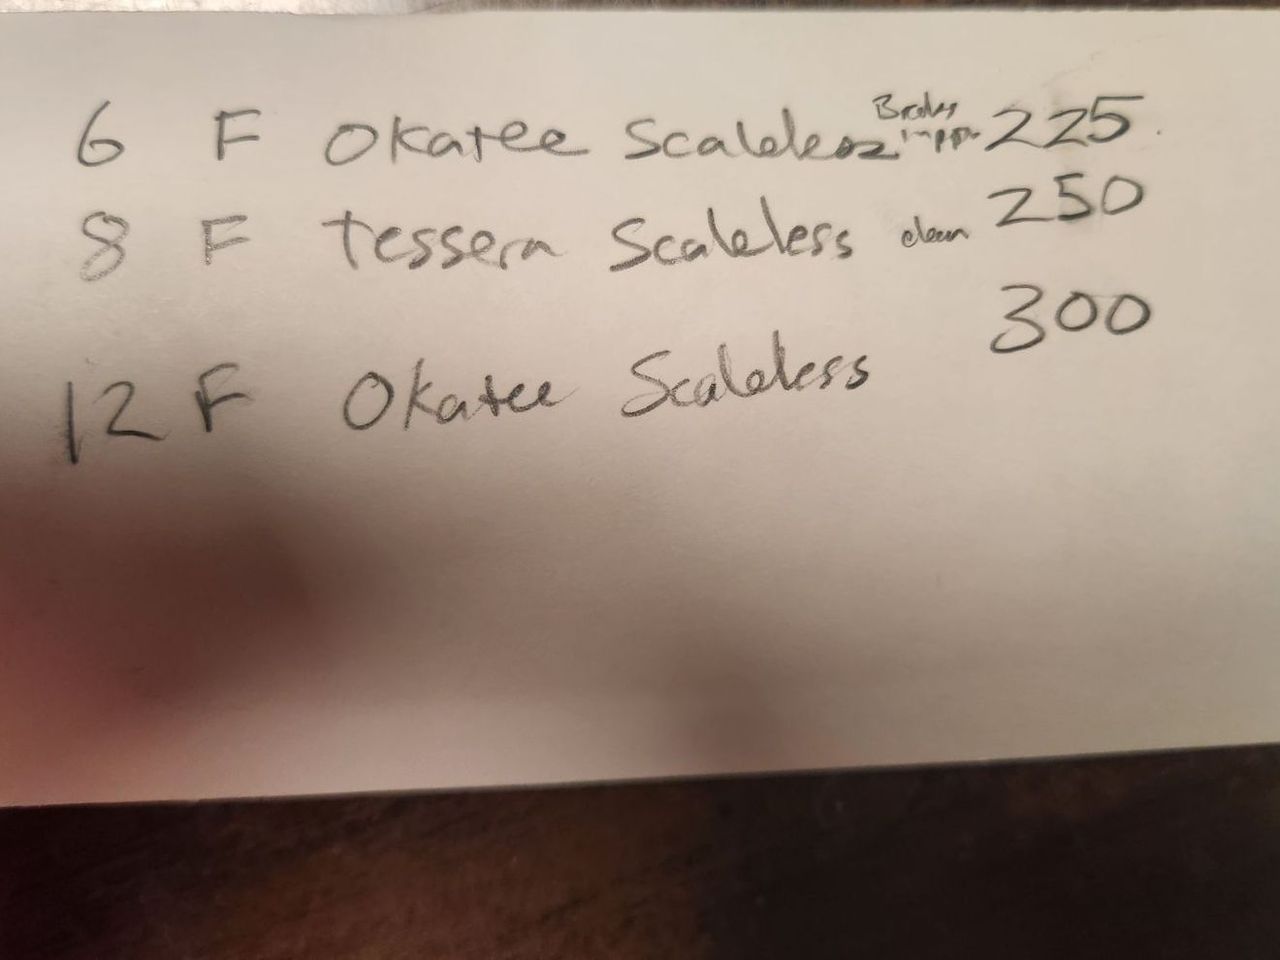 6 F Okatee Scaleless 225
8 F tessera Scaleless clean 250
12 F Okatee Scaleless 300